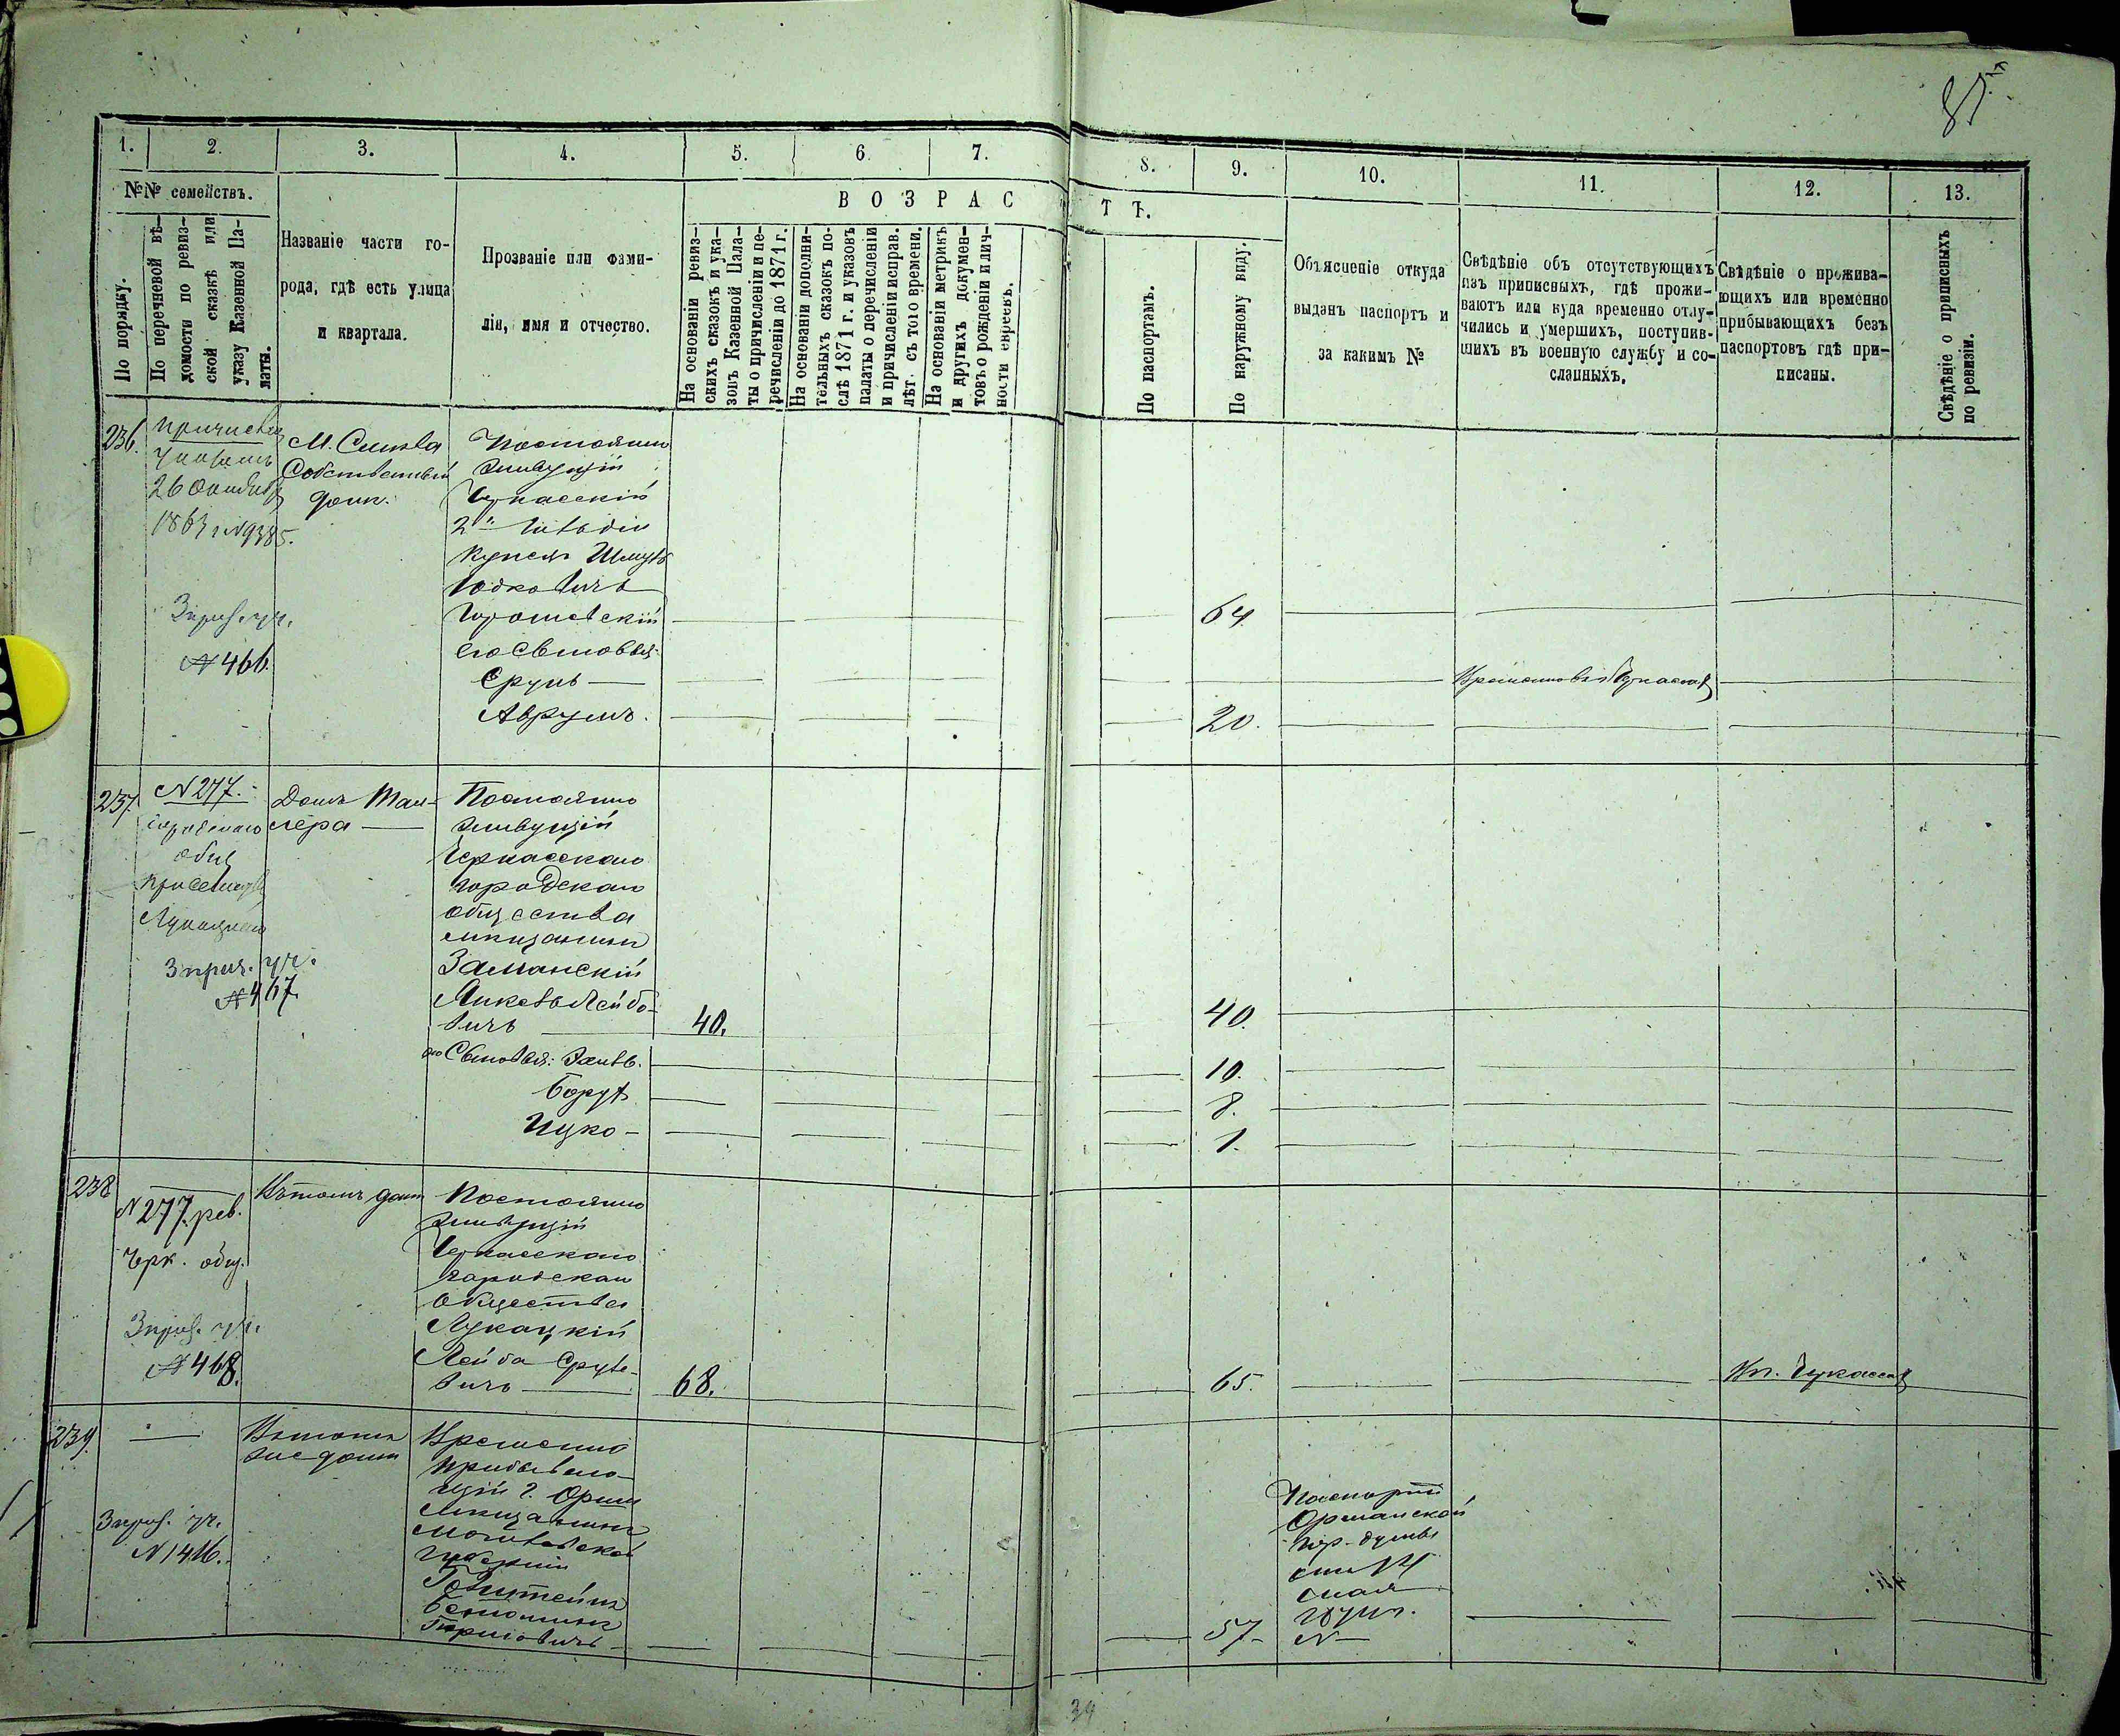 87
1.
2.
3.
4.
5.
6.
7.
8.
9.
10.
11.
12.
13.
№№ семействъ.
ВОЗРАСТЪ.
По порядку.
По перечневой вѣ-
домости по ревиз-
ской сказкѣ или
указу Казенной Па-
латы.
Названіе части го-
рода, гдѣ есть улица
и квартала.
Прозваніе или фами-
лія, имя и отчество.
На основаніи ревиз-
скихъ сказокъ и ука-
зовъ Казенной Пала-
ты о причисленіи и пе-
речисленіи до 1871 г.
На основаніи дополни-
тельныхъ сказокъ по-
слѣ 1871 г. и указовъ
палаты о перечисленіи
и причисленіи исправ.
лѣт. съ того времени.
На основаніи метрикъ
и другихъ докумен-
товъ о рожденіи и лич-
ности евреевъ.
По паспортамъ.
По наружному виду.
Объясненіе откуда
выданъ паспортъ и
за какимъ №
Свѣдѣніе объ отсутствующихъ
изъ приписныхъ, гдѣ прожи-
ваютъ или куда временно отлу-
чились и умершихъ, поступив-
шихъ въ военную службу и со-
сланныхъ.
Свѣдѣніе о прожива-
ющихъ или временно
прибывающихъ безъ
паспортовъ гдѣ при-
писаны.
Свѣдѣніе о приписныхъ
по ревизіи.
236.
26 Октября
1863 г. N 9385.
3 приз. уч.
№ 466.
М. Смила
Собственный
домъ.
Постоянно
живущій
Черкасскій
2й Гильдіи
Купецъ Шмуль
Іодковичъ
64
его Сыновья:
Срулъ —
Аврумъ.
20.
237.
N 277.
городского
общ
3 приз. уч.
№ 467.
Домъ Тан-
лера —
Постоянно
живущій
Черкасскаго
городскаго
общества
мѣщанинъ
Заманскій
Янкель Лейбо-
вичъ
40.
40.
его Сыновья:
10.
Борухъ
8.
Ицко —
1.
238
N 277 рев.
Черк. общ.
3 приз. уч.
№ 468.
Въ томъ домѣ
Постоянно
живущій
Черкасскаго
городскаго
Общества
Лукацкій
Лейба Сруле-
вичъ
68.
65.
239.
3 приз. уч.
N 1416.
Въ томъ
же домѣ
Временно
прибываю-
щій г. Орши
мѣщанинъ
Могилевской
губерніи
57 —
Паспортъ
Оршанской
гор. думы
N —
39